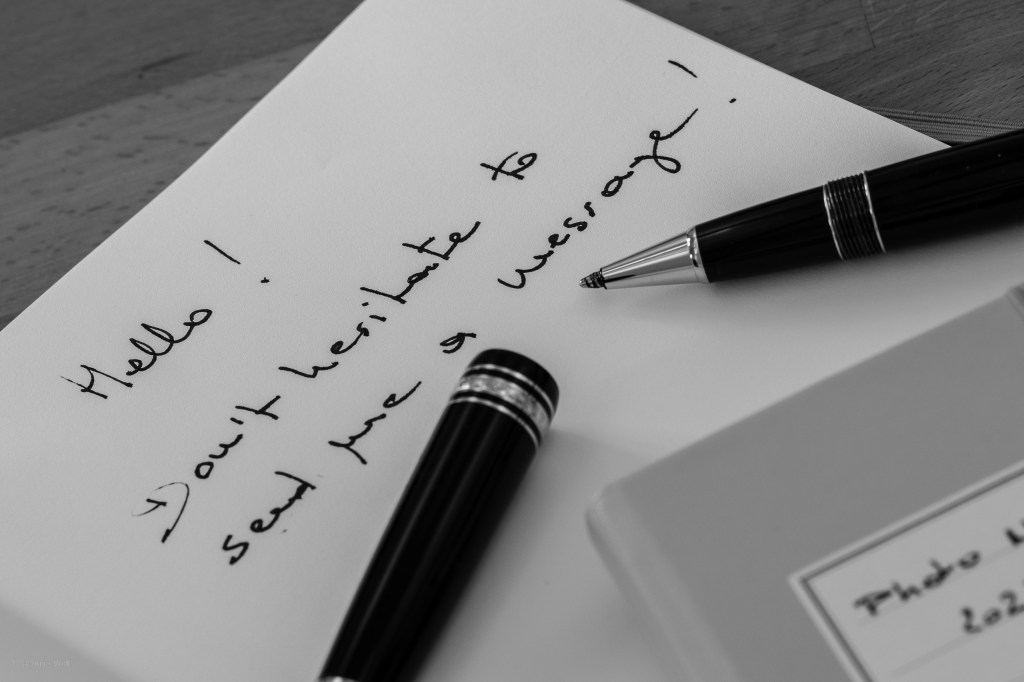 Hello !
Don't hesitate to
send me a message !
Photo